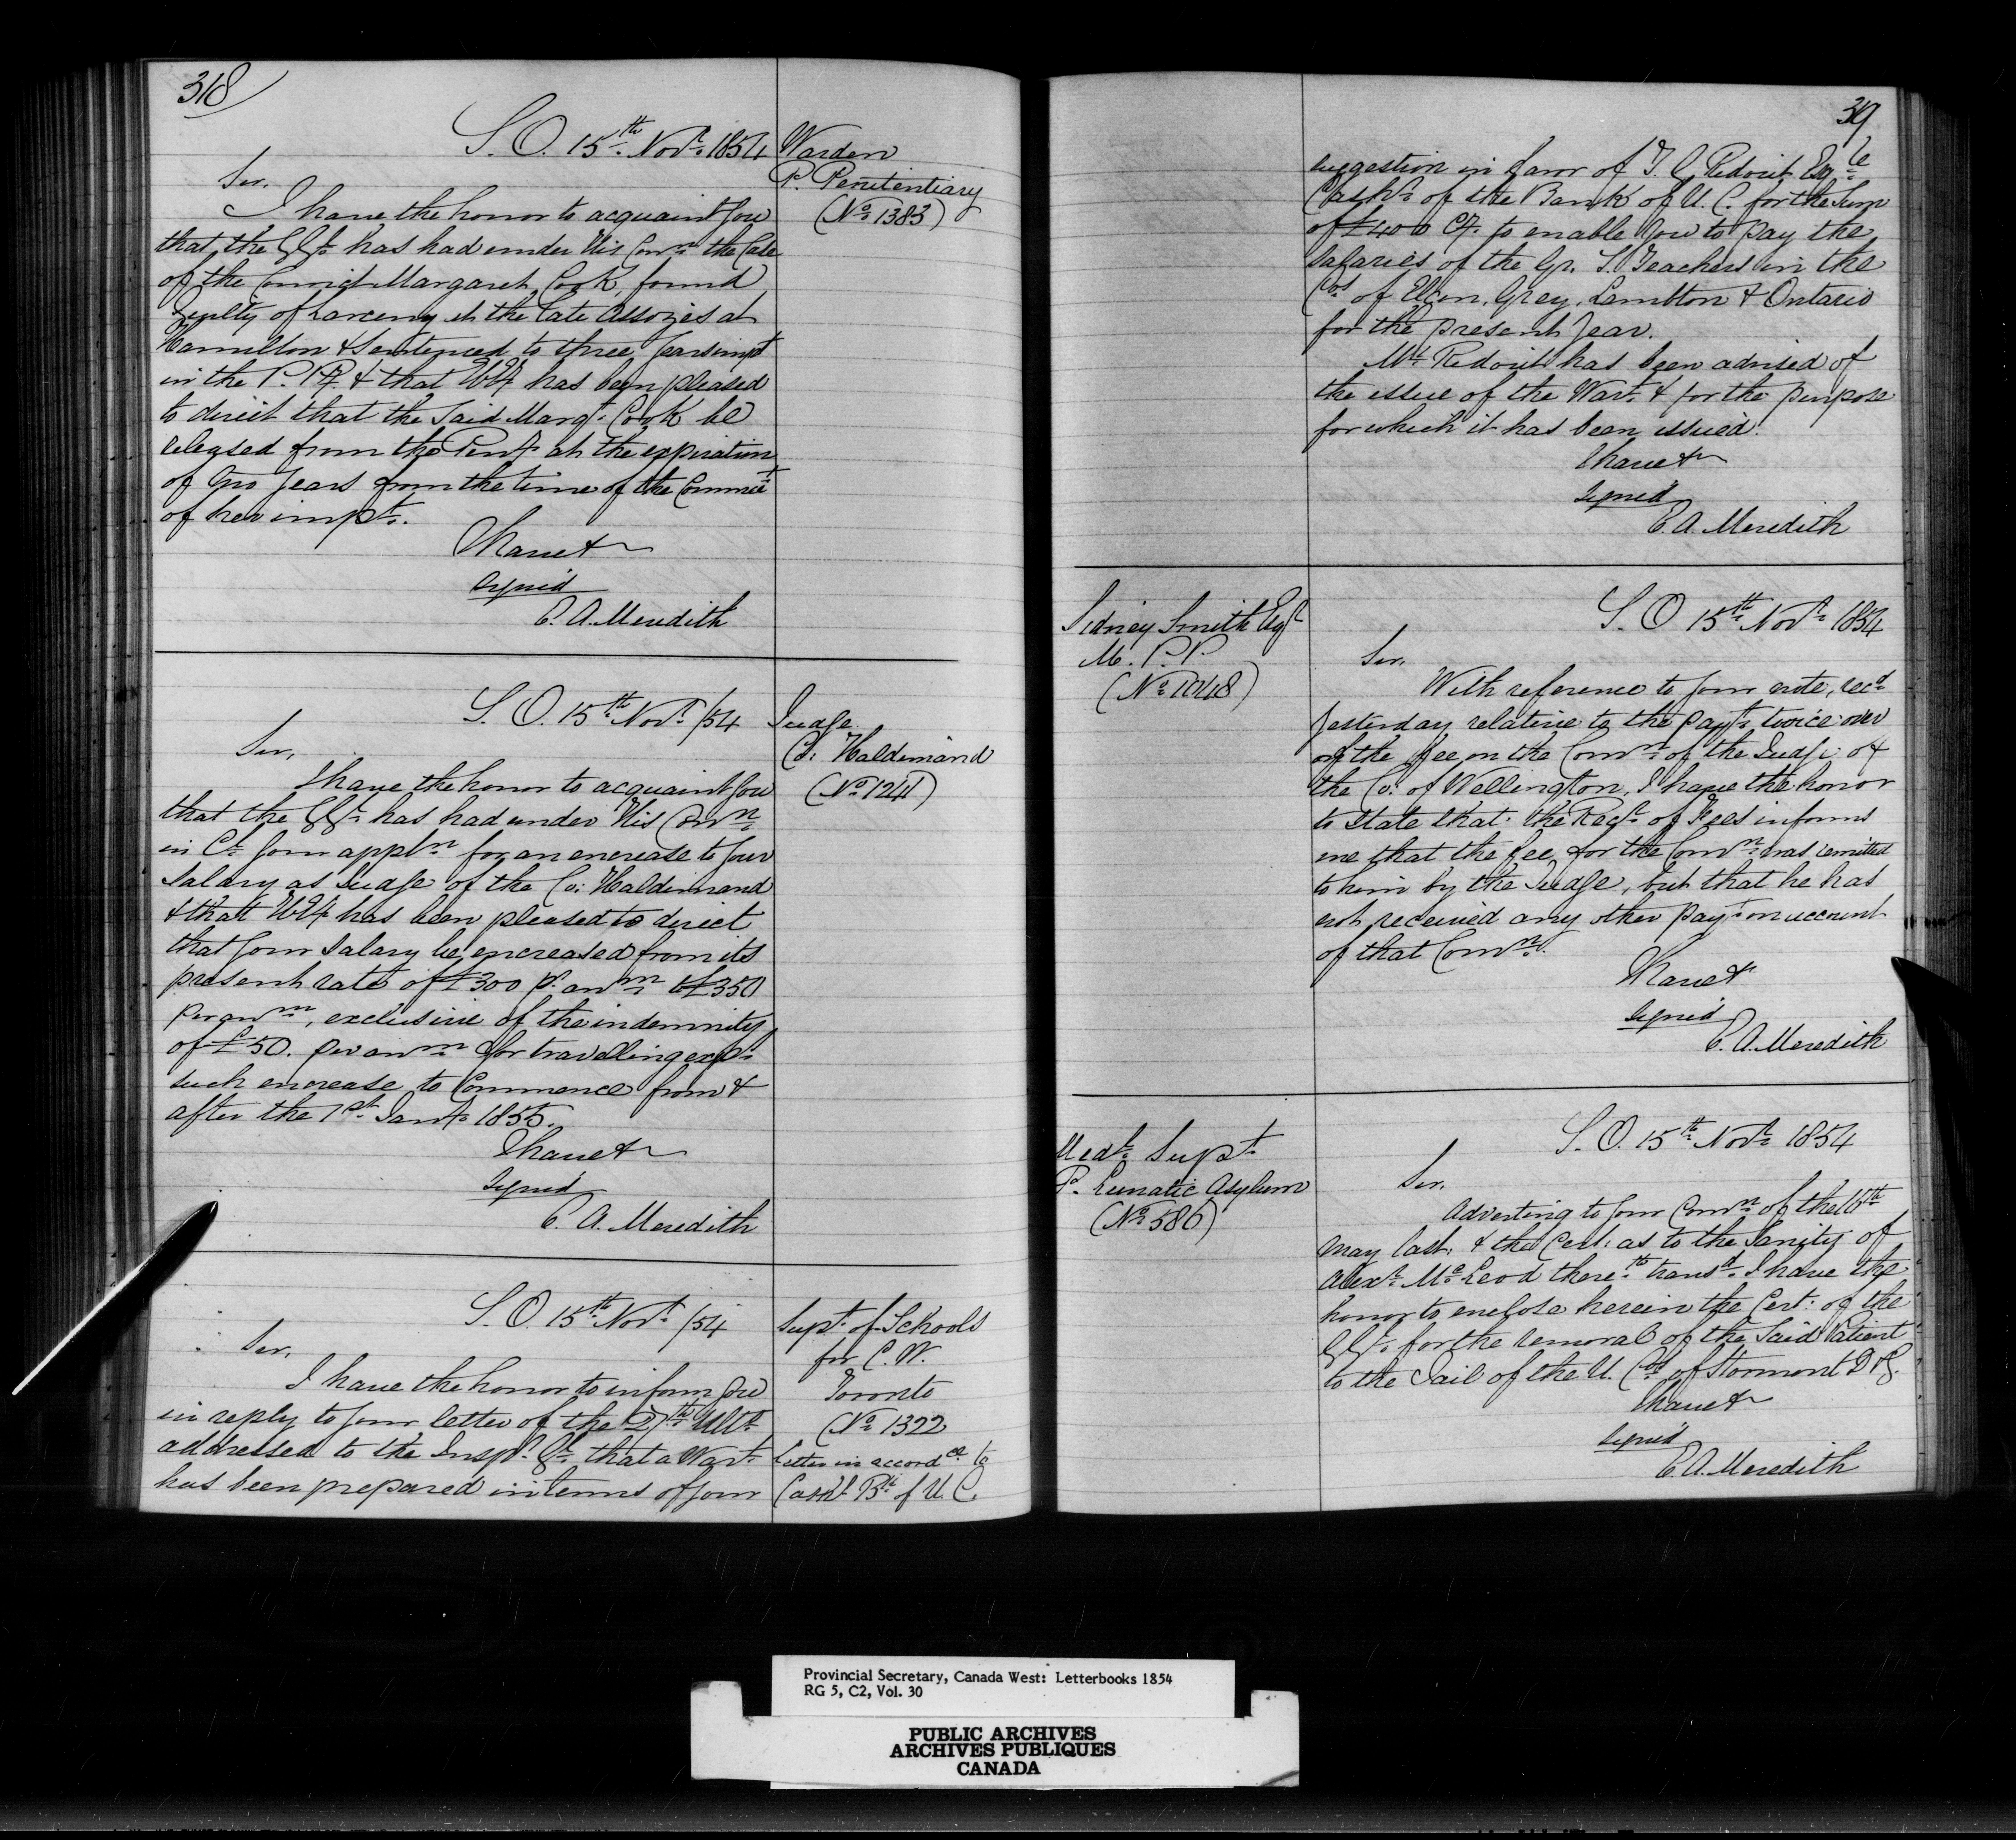 318
S. O. 15th Novr. 1854
Warden
P. Penitentiary
(No. 1383)
Sir,
I have the honor to acquaint you
that the GGl. has had under His Conn. the Case
of the Convict Margaret Cook, found
Guilty of Larceny at the late Assizes at
Hamilton & Sentenced to three years impt
in the P. Py. & that HEy has been pleased
to direct that the Said Margt. Cook be
released from the Peny. at the expiration
of two years from the time of the Commct
of her impt.
I have &
signed
E. A. Meredith
S. O. 15th Novr. /54
Judge
Co. Haldimand
(No. 1241)
Sir,
I have the honor to acquaint you
that the GGl. has had under His Conn.
in Cl. your appln. for an encrease to your
Salary as Judge of the Co: Haldimand
& that HEy has been pleased to direct
that your Salary be encreased from its
present rate of £300 p. annm. to £350
per annm., exclusive of the indemnity
of £50. per annm. for travelling exps.
such encrease to Commence from &
after the 1st Jany. 1855.
I have &
signed
E. A. Meredith
S. O. 15th Novr. /54
Supt. of Schools
for C. W.
Toronto
(No. 1322
Letter in accordce. to
Cashr. Bk. of U. C.
Sir,
I have the honor to inform you
in reply to your letter of the 27th Ulto.
addressed to the Inspr. Gl. that a Wart.
has been prepared in terms of your
319
suggestion in favor of T. G. Ridout Esqre.
Cashr. of the Bank of U. C. for the Sum
of £400 Cy. to enable you to pay the
Salaries of the Gr. S. Teachers in the
Cos. of Elgin, Grey, Lambton & Ontario
for the present year.
Mr. Ridout has been advised of
the issue of the Wart. & for the purpose
for which it has been issued.
I have &
signed
E. A. Meredith
Sidney Smith Esqr
M. P. P.
(No. 1048)
S. O 15th Novr. 1854
Sir,
With reference to your note, recd.
yesterday relative to the payt. twice over
of the fee on the Comn. of the Judge of
the Co. of Wellington, I have the honor
to state that the Regr. of Fees informs
me that the fee for the Comn. was remitted
to him by the Judge, but that he has
not received any other payt. on account
of that Comn.
I have &
signed
E. A. Meredith
Medl. Supt.
P. Lunatic Asylum
(No. 586)
S. O. 15th Novr. 1854
Sir,
Adverting to your Comn. of the 16th
May last, & the Cert: as to the Sanity of
Alexr. McLeod therewth. transd. I have the
honor to enclose herein the Cert: of the
GGl. for the removal of the Said Patient
to the Jail of the U. Cos. of Stormont D & G.
I have &
signed
E. A. Meredith
Provincial Secretary, Canada West: Letterbooks 1854
RG 5, C2, Vol. 30
PUBLIC ARCHIVES
ARCHIVES PUBLIQUES
CANADA